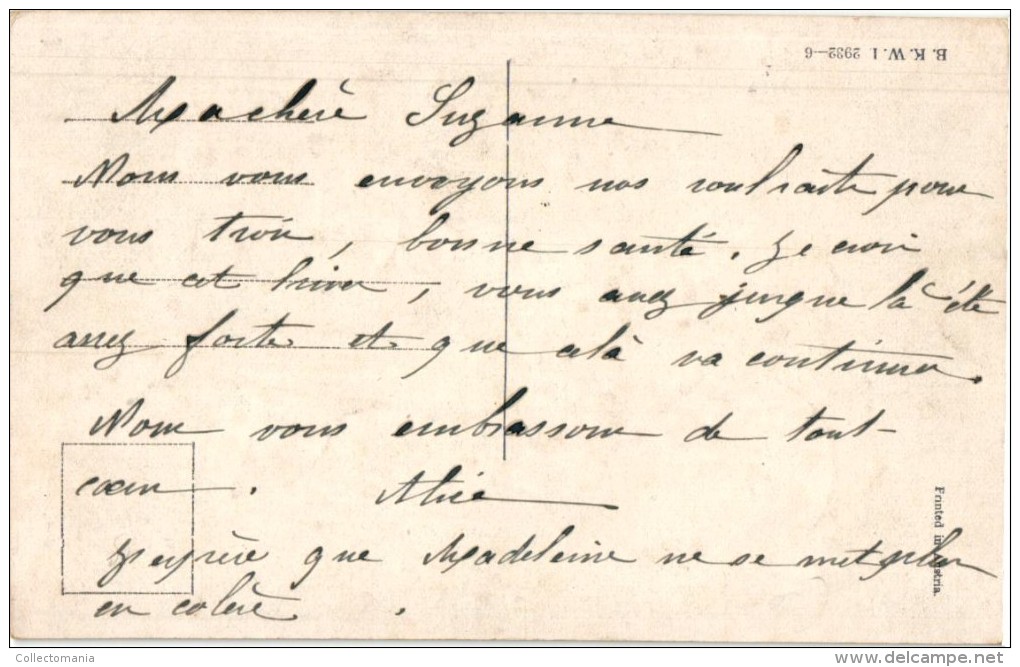 B. K. W. I 2932—6
Ma chère Suzanne
Nous vous envoyons nos souhaits pour
vous trois, bonne santé. Je crois
que cet hiver, vous avez jusque là été
assez forte et que celà va continuer.
Nous vous embrassons de tout
coeur. Alice
J'espère que Madeleine ne se met plus
en colère.
Printed in Austria.
Collectomania
www.delcampe.net